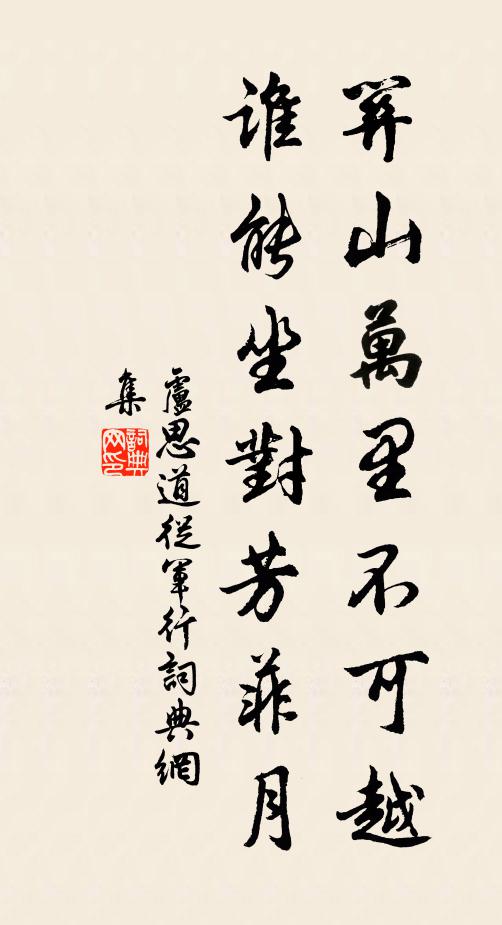 關山萬里不可越
誰能坐對芳菲月
盧思道從軍行詞典網
集
詞典
网印